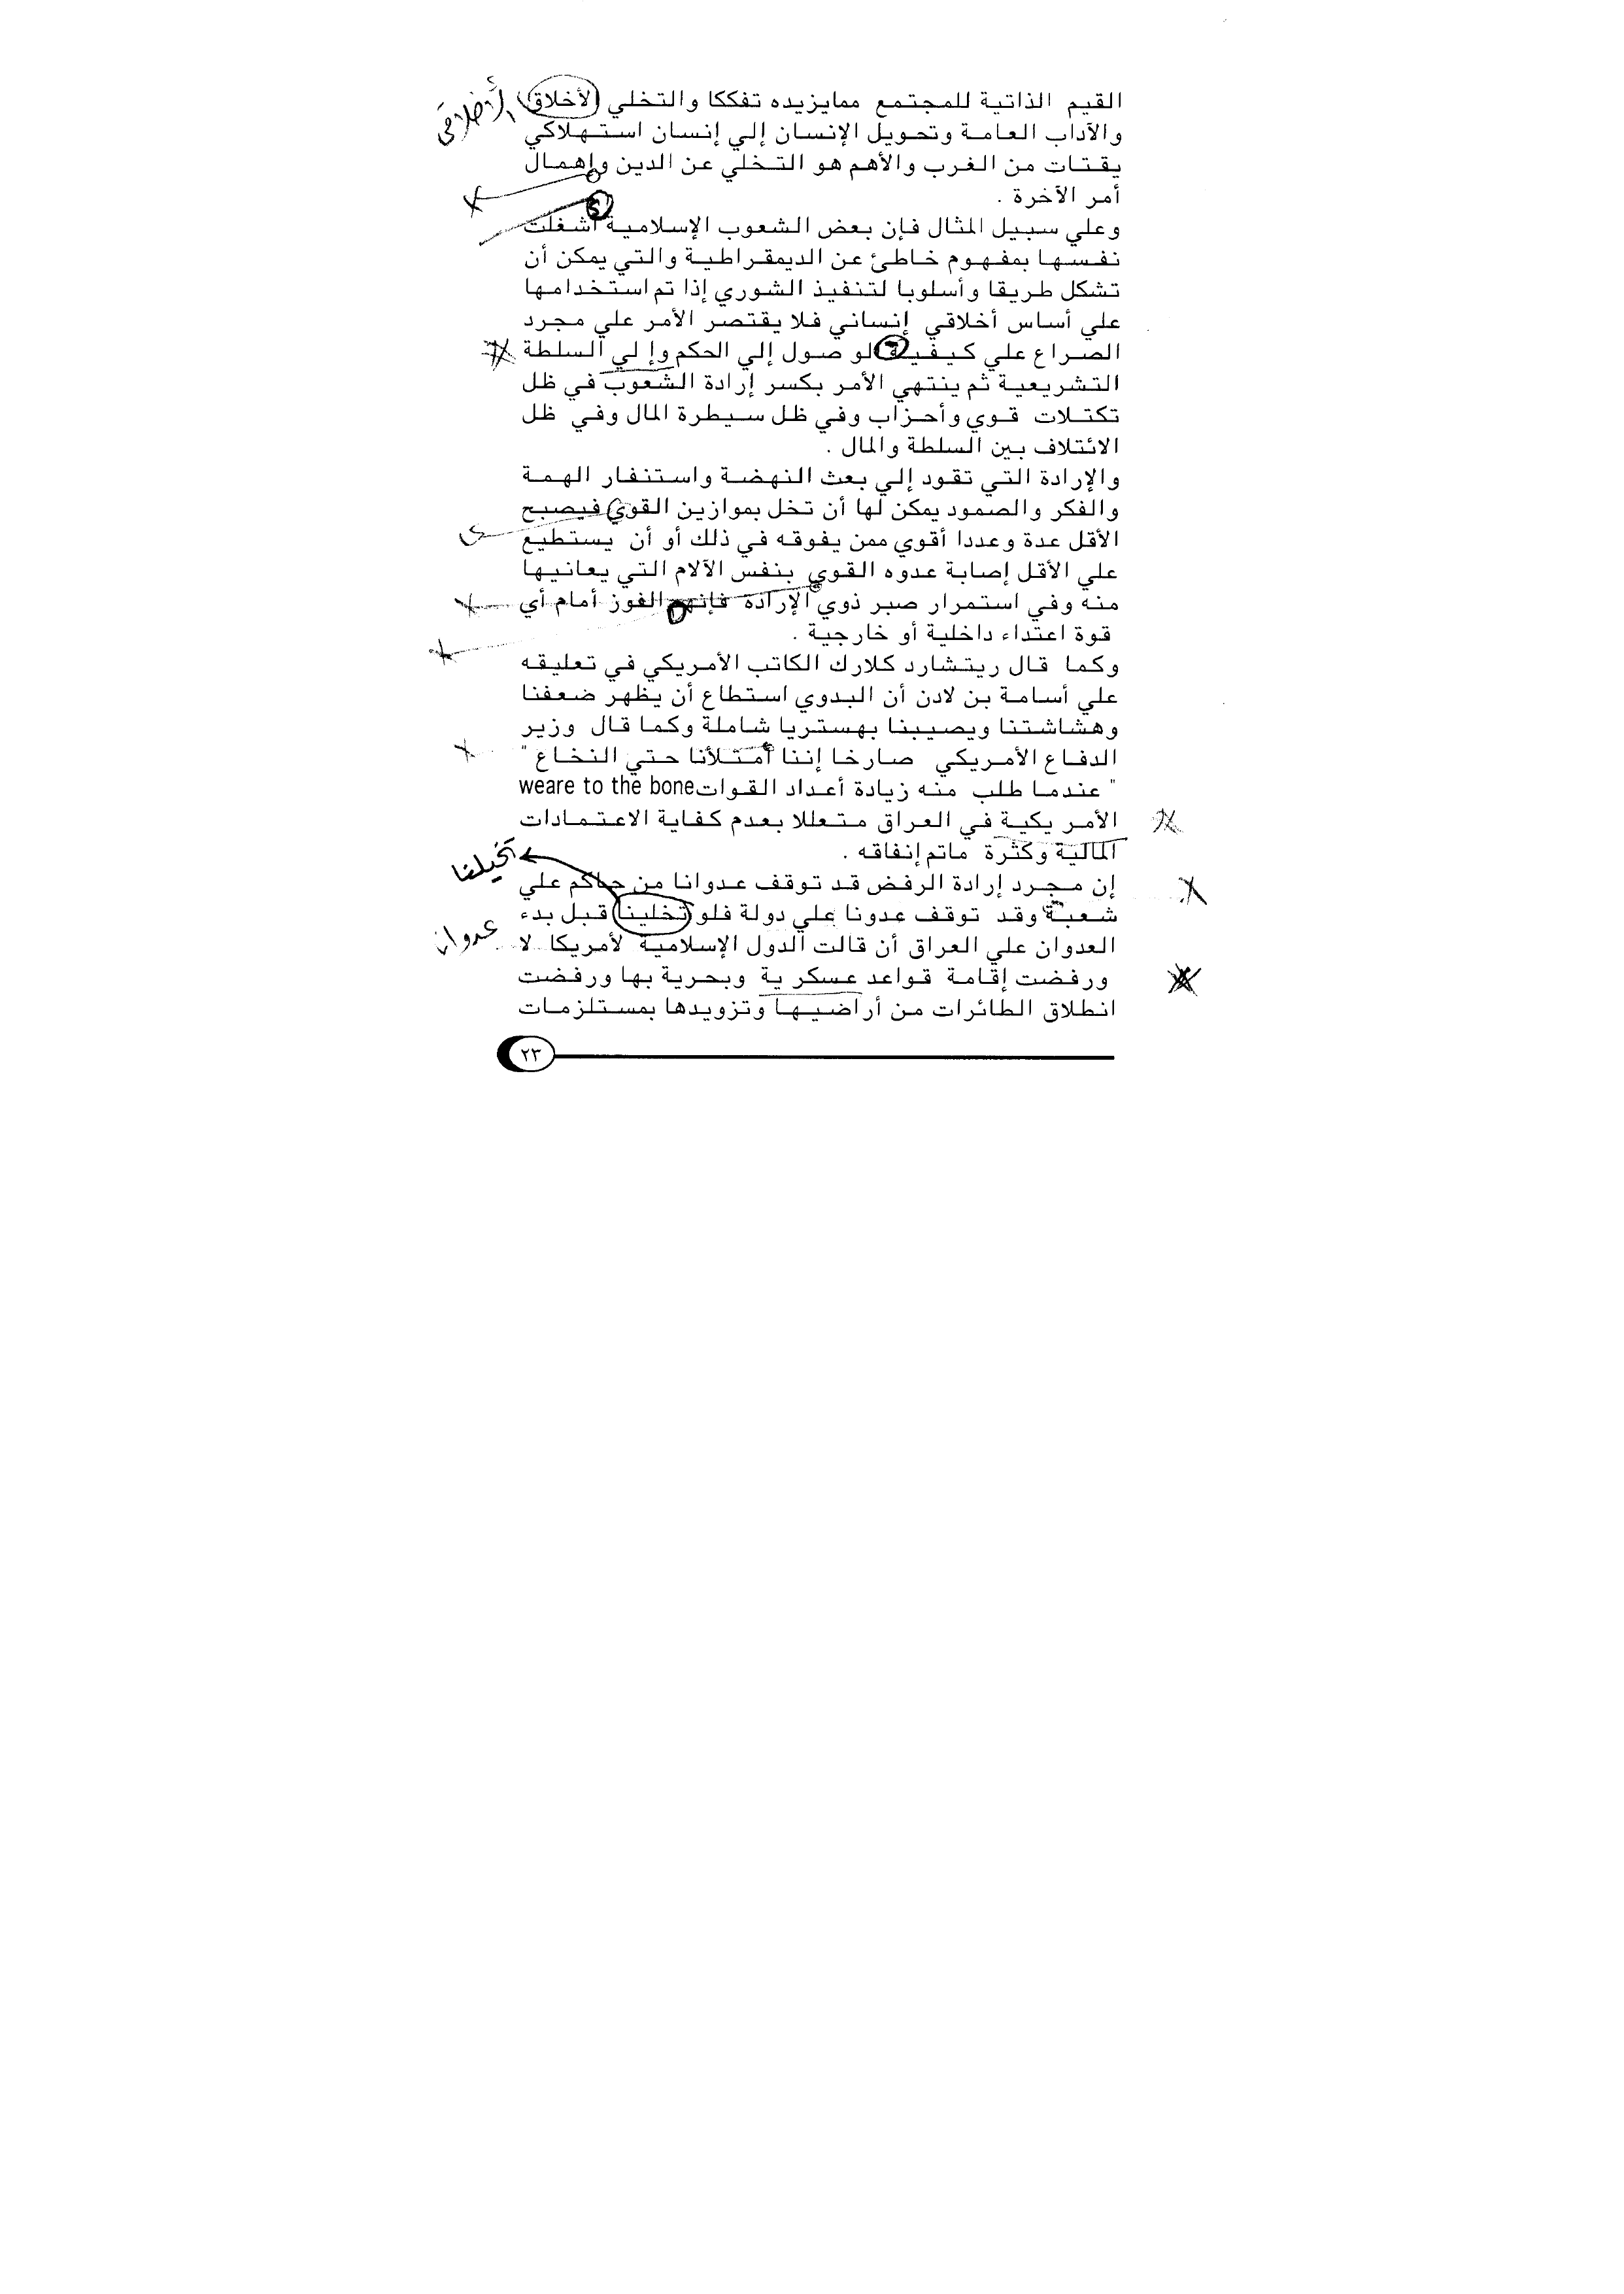 القيم الذاتية للمجتمع ممايزيده تفككا والتخلي (لأخلاق)
والآداب العامة وتحويل الإنسان إلي إنسان استهلاكي
يقتات من الغرب والأهم هو التخلي عن الدين وإهمال
أمر الآخرة .
وعلي سبيل المثال فإن بعض الشعوب الإسلامية أشغلت
نفسها بمفهوم خاطئ عن الديمقراطية والتي يمكن أن
تشكل طريقا وأسلوبا لتنفيذ الشوري إذا تم استخدامها
علي أساس أخلاقي إنساني فلا يقتصر الأمر علي مجرد
الصراع علي كيفية لو صول إلي الحكم وإ لي السلطة
التشريعية ثم ينتهي الأمر بكسر إرادة الشعوب في ظل
تكتلات قوي وأحزاب وفي ظل سيطرة المال وفي ظل
الائتلاف بين السلطة والمال .
والإرادة التي تقود إلي بعث النهضة واستنفار الهمة
والفكر والصمود يمكن لها أن تخل بموازين القوي فيصبح
الأقل عدة وعددا أقوي ممن يفوقه في ذلك أو أن يستطيع
علي الأقل إصابة عدوه القوي بنفس الآلام التي يعانيها
منه وفي استمرار صبر ذوي الإرادة فإنهم الفوز أمام أي
قوة اعتداء داخلية أو خارجية .
وكما قال ريتشارد كلارك الكاتب الأمريكي في تعليقه
علي أسامة بن لادن أن البدوي استطاع أن يظهر ضعفنا
وهشاشتنا ويصيبنا بهستريا شاملة وكما قال وزير
الدفاع الأمريكي صارخا إننا أمتلأنا حتي النخاع "
" عندما طلب منه زيادة أعداد القوات weare to the bone
الأمر يكية في العراق متعللا بعدم كفاية الاعتمادات
المالية وكثرة ماتم إنفاقه .
تخيلنا
إن مجرد إرادة الرفض قد توقف عدوانا من حاكم علي
شعبة وقد توقف عدونا علي دولة فلو تخلينا قبل بدء
عدوان
العدوان علي العراق أن قالت الدول الإسلامية لأمريكا لا
ورفضت إقامة قواعد عسكر ية وبحرية بها ورفضت
انطلاق الطائرات من أراضيها وتزويدها بمستلزمات
٢٣